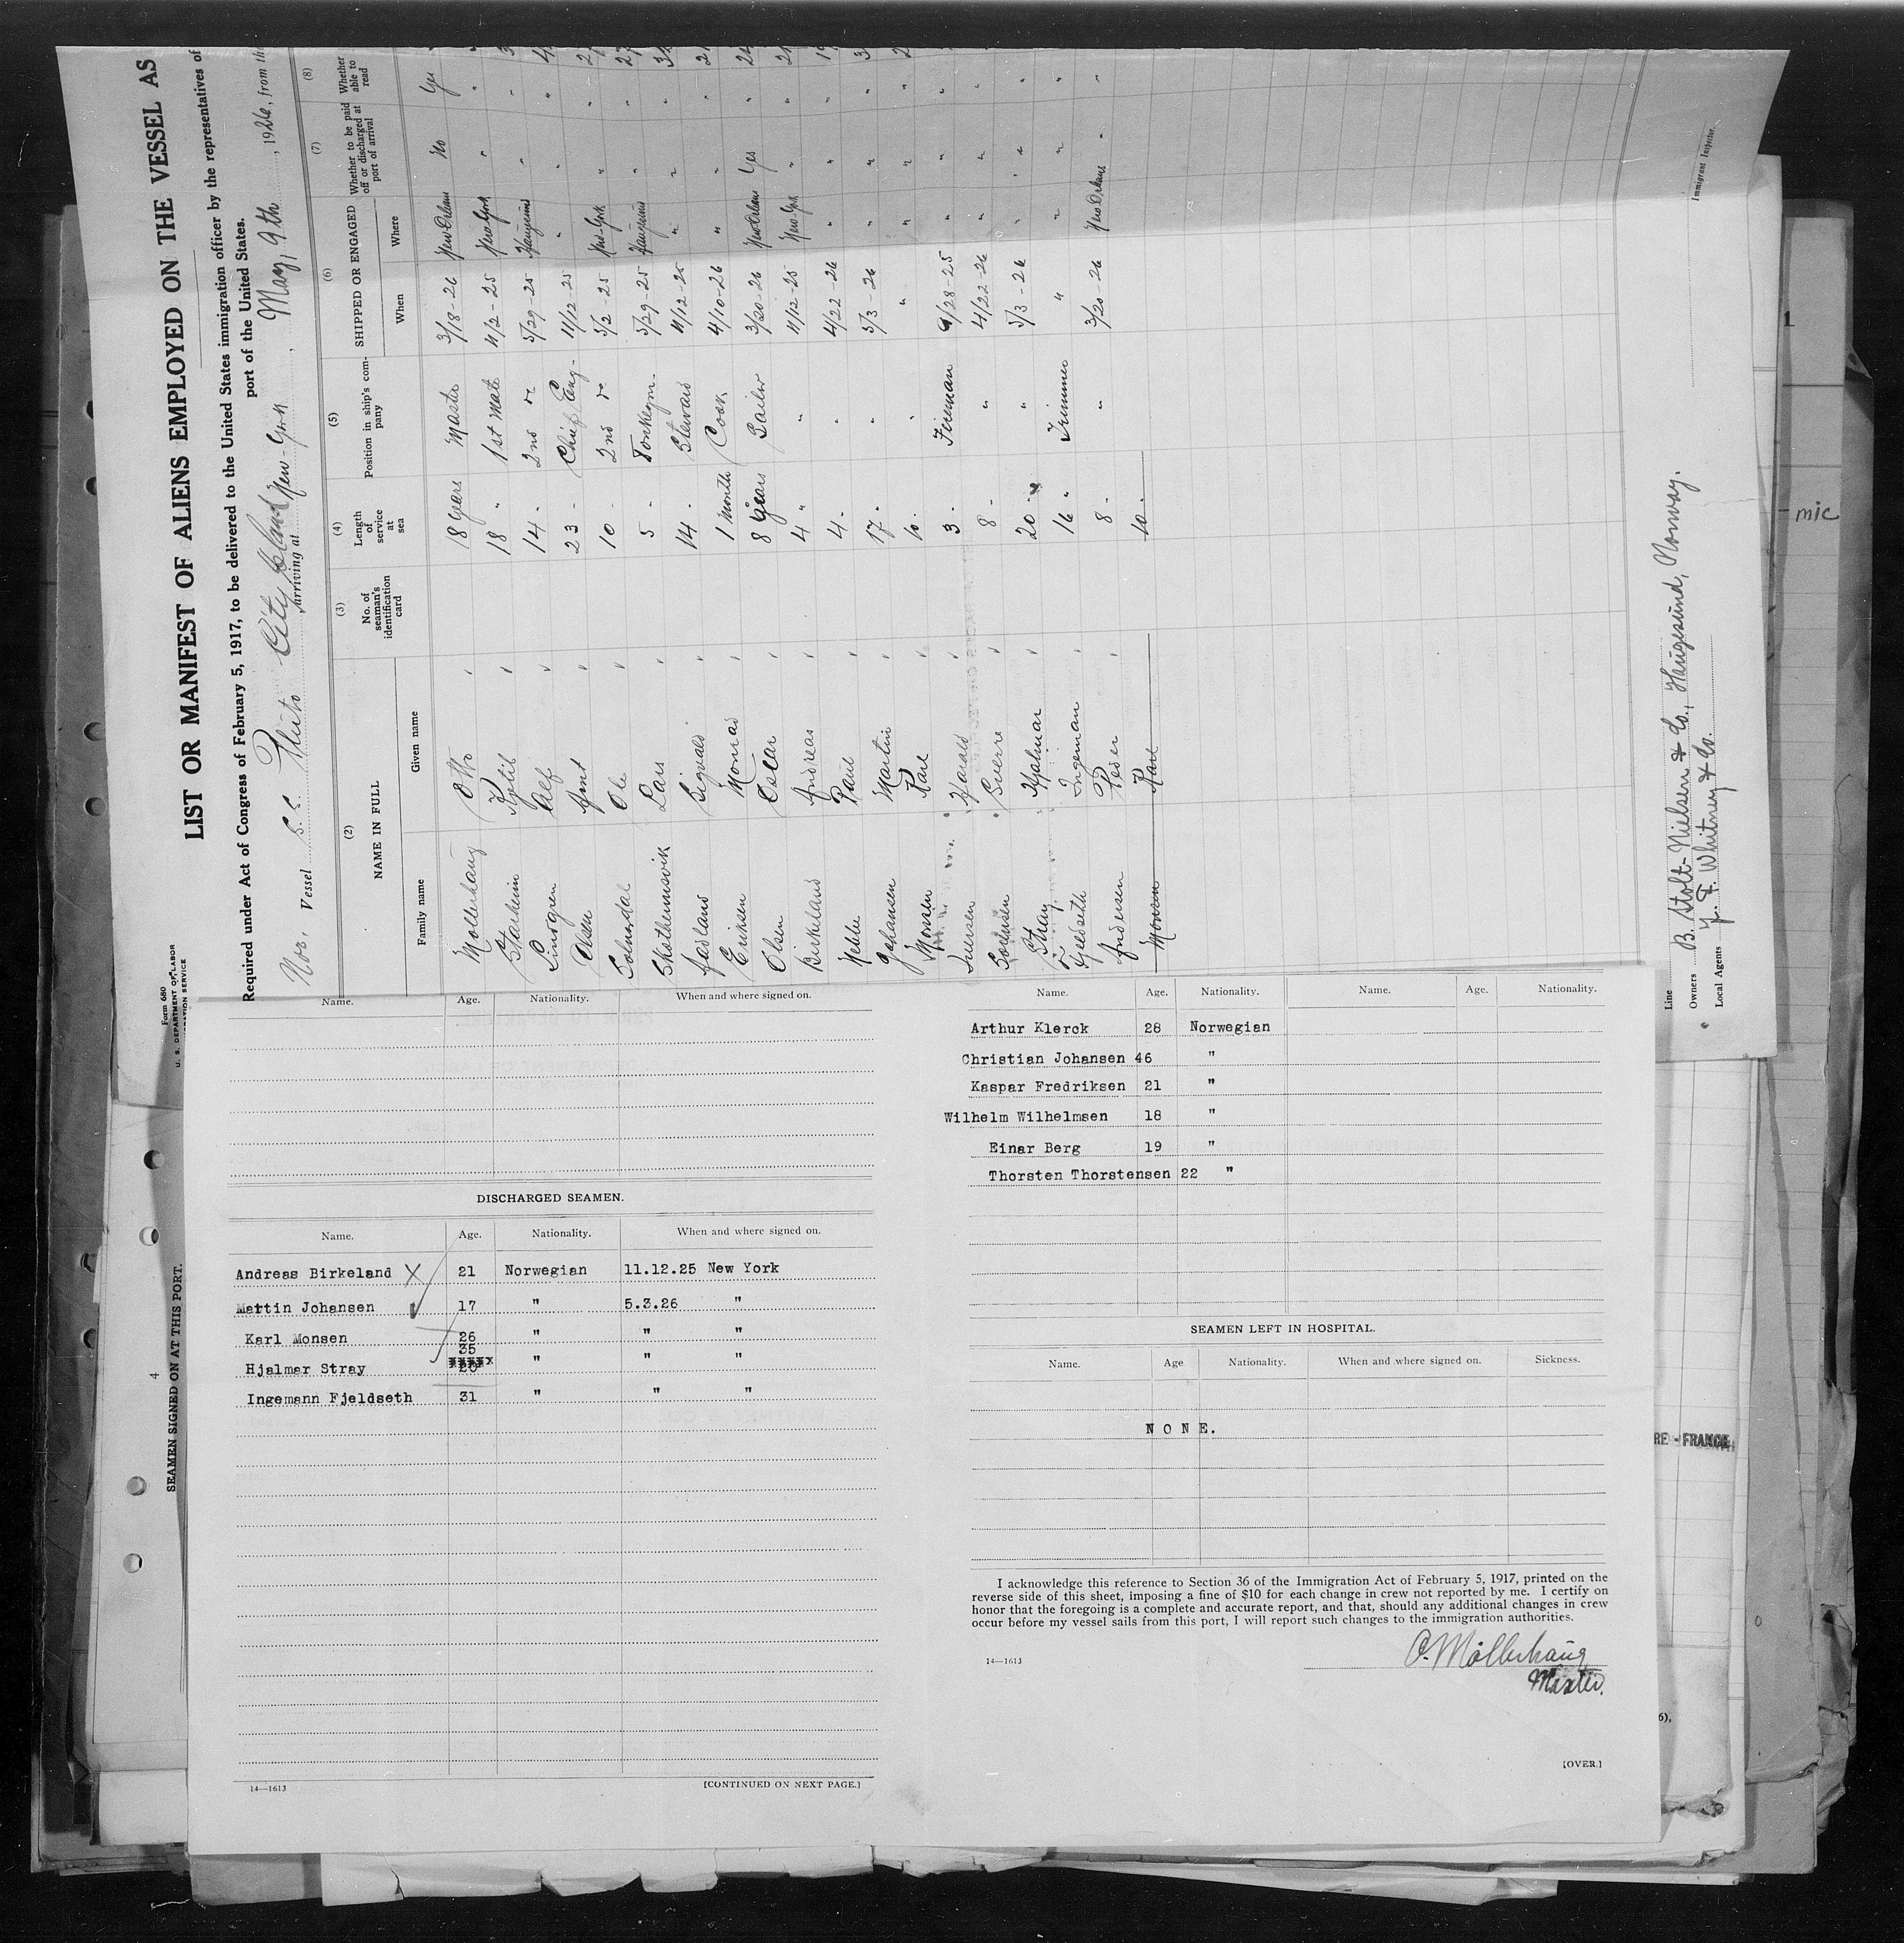 Form 680
U. S. DEPARTMENT OF LABOR
LIST OR MANIFEST OF ALIENS EMPLOYED ON THE VESSEL AS
Required under Act of Congress of February 5, 1917, to be delivered to the United States immigration officer by the representatives of
port of the United States.
Nor. Vessel S.S. Pluto arriving at New-York, May, 9th, 1926, from the
(2) (3) (4) (5) (6) (7) (8)
NAME IN FULL No. of seaman's identification card Length of service at sea Position in ship's company SHIPPED OR ENGAGED Whether to be paid off or discharged at port of arrival Whether able to read
Family name Given name When Where
Mollerhaug Otto 18 years Master 3/18-26 New Orleans No Yes
Starheim Kjetil 18 " 1st Mate 4/2-25 New-York " "
Lindgren Alf 14 - 2nd 5/29-25 Haugesund " "
Olsen Arnt 23 - Chief Eng. 11/12-25 " " "
Ole 10 - 2nd 5/2-25 New-York " "
Skathemsvik Lars 5 - 5/29-25 Haugesund " "
Sigvald 14 - Steward 11/12-25 " " "
Eriksen Monrad 1 month Cook 4/10-26 " " "
Olsen Oscar 8 years Sailor 3/20-26 New Orleans Yes "
Birkeland Andreas 4 " " 11/12-25 New-York " "
Paul 4 - " 4/22-26 " " "
Johansen Martin 17 - " 5/3-26 " " "
Monsen Karl 10 - " " " " "
Iversen Harald 3 - Fireman 9/28-25 " " "
Sorensen Sverre 8 - " 4/22-26 " " "
Stray Hjalmar 20 - " 5/3-26 " " "
Fjeldseth Ingeman 16 " Trimmer " " " "
Andersen Peder 8 - " 3/20-26 New Orleans " "
Monsen Karl 10 -
Line
Owners B. Stolt-Nielsen & Co., Haugesund, Norway.
Local Agents J. F. Whitney & Co.
Immigrant Inspector.
mic
4
SEAMEN SIGNED ON AT THIS PORT.
Name. Age. Nationality. When and where signed on.
DISCHARGED SEAMEN.
Name. Age. Nationality. When and where signed on.
Andreas Birkeland X 21 Norwegian 11.12.25 New York
Martin Johansen 17 " 5.3.26 "
Karl Monsen 26 " " "
35
Hjalmar Stray " " "
Ingemann Fjeldseth 31 " " "
14—1613 [CONTINUED ON NEXT PAGE.]
Name. Age. Nationality. Name. Age. Nationality.
Arthur Klerck 28 Norwegian
Christian Johansen 46 "
Kaspar Fredriksen 21 "
Wilhelm Wilhelmsen 18 "
Einar Berg 19 "
Thorsten Thorstensen 22 "
SEAMEN LEFT IN HOSPITAL.
Name. Age. Nationality. When and where signed on. Sickness.
N O N E.
I acknowledge this reference to Section 36 of the Immigration Act of February 5, 1917, printed on the
reverse side of this sheet, imposing a fine of $10 for each change in crew not reported by me. I certify on
honor that the foregoing is a complete and accurate report, and that, should any additional changes in crew
occur before my vessel sails from this port, I will report such changes to the immigration authorities.
14—1613
O. Möllerhaug
Master.
[OVER.]
RE - FRANCE